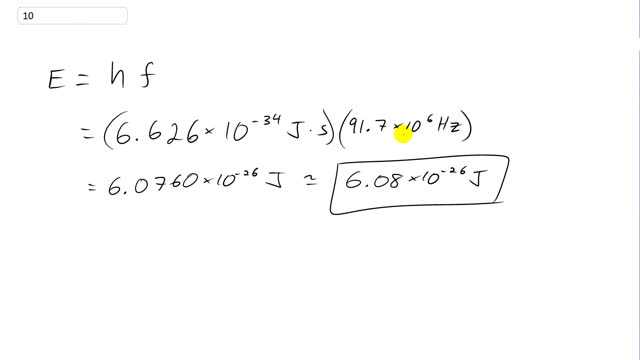 10
E = h f
= (6.626 × 10⁻³⁴ J · s)(91.7 × 10⁶ Hz)
= 6.0760 × 10⁻²⁶ J ≈ 6.08 × 10⁻²⁶ J